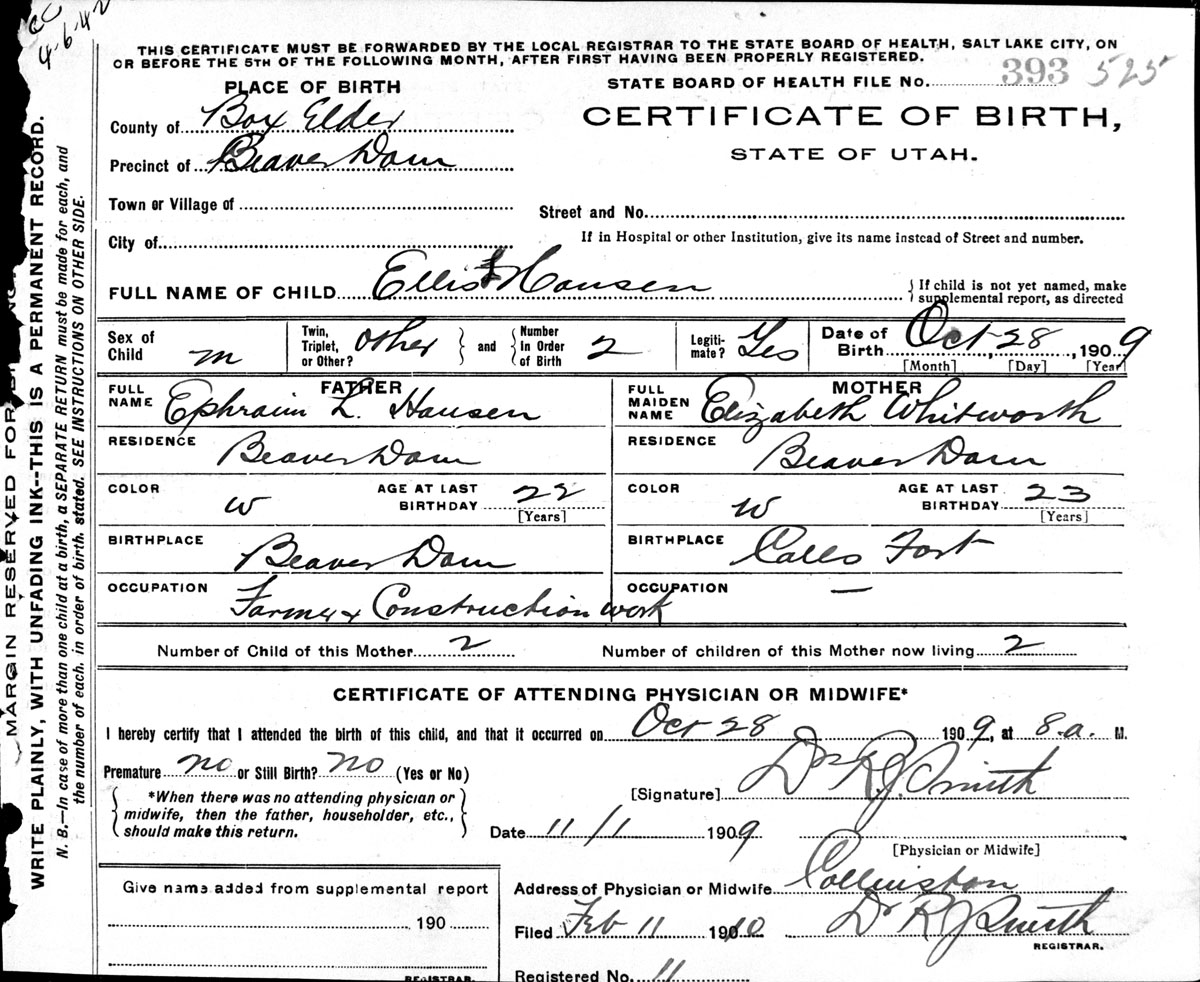 CC
4-6-42
THIS CERTIFICATE MUST BE FORWARDED BY THE LOCAL REGISTRAR TO THE STATE BOARD OF HEALTH, SALT LAKE CITY, ON
OR BEFORE THE 5TH OF THE FOLLOWING MONTH, AFTER FIRST HAVING BEEN PROPERLY REGISTERED.
PLACE OF BIRTH
STATE BOARD OF HEALTH FILE No. 393 525
County of Box Elder
CERTIFICATE OF BIRTH,
Precinct of Beaver Dam
STATE OF UTAH.
Town or Village of
Street and No.
City of
If in Hospital or other Institution, give its name instead of Street and number.
FULL NAME OF CHILD Ellis Hansen
If child is not yet named, make
supplemental report, as directed
Sex of Child m
Twin, Triplet, or Other? other and Number In Order of Birth 2
Legiti-mate? Yes
Date of Birth Oct 28, 1909
[Month] [Day] [Year]
FATHER
FULL NAME Ephraim L. Hansen
MOTHER
FULL MAIDEN NAME Elizabeth Whitworth
RESIDENCE Beaver Dam
RESIDENCE Beaver Dam
COLOR W AGE AT LAST BIRTHDAY 22 [Years]
COLOR W AGE AT LAST BIRTHDAY 23 [Years]
BIRTHPLACE Beaver Dam
BIRTHPLACE Calls Fort
OCCUPATION Farmer & Construction work
OCCUPATION —
Number of Child of this Mother 2
Number of children of this Mother now living 2
CERTIFICATE OF ATTENDING PHYSICIAN OR MIDWIFE*
I hereby certify that I attended the birth of this child, and that it occurred on Oct 28 1909, at 8 a. M.
Premature no or Still Birth? no (Yes or No)
[Signature] Dr R. J. Smith
*When there was no attending physician or
midwife, then the father, householder, etc.,
should make this return.
Date 11/1 1909
[Physician or Midwife]
Give name added from supplemental report
190
REGISTRAR.
Address of Physician or Midwife Collinston
Filed Feb 11 1910 Dr R J Smith
REGISTRAR.
Registered No. 11
MARGIN RESERVED FOR
WRITE PLAINLY, WITH UNFADING INK--THIS IS A PERMANENT RECORD.
N. B.—In case of more than one child at a birth, a SEPARATE RETURN must be made for each, and
the number of each, in order of birth, stated. SEE INSTRUCTIONS ON OTHER SIDE.